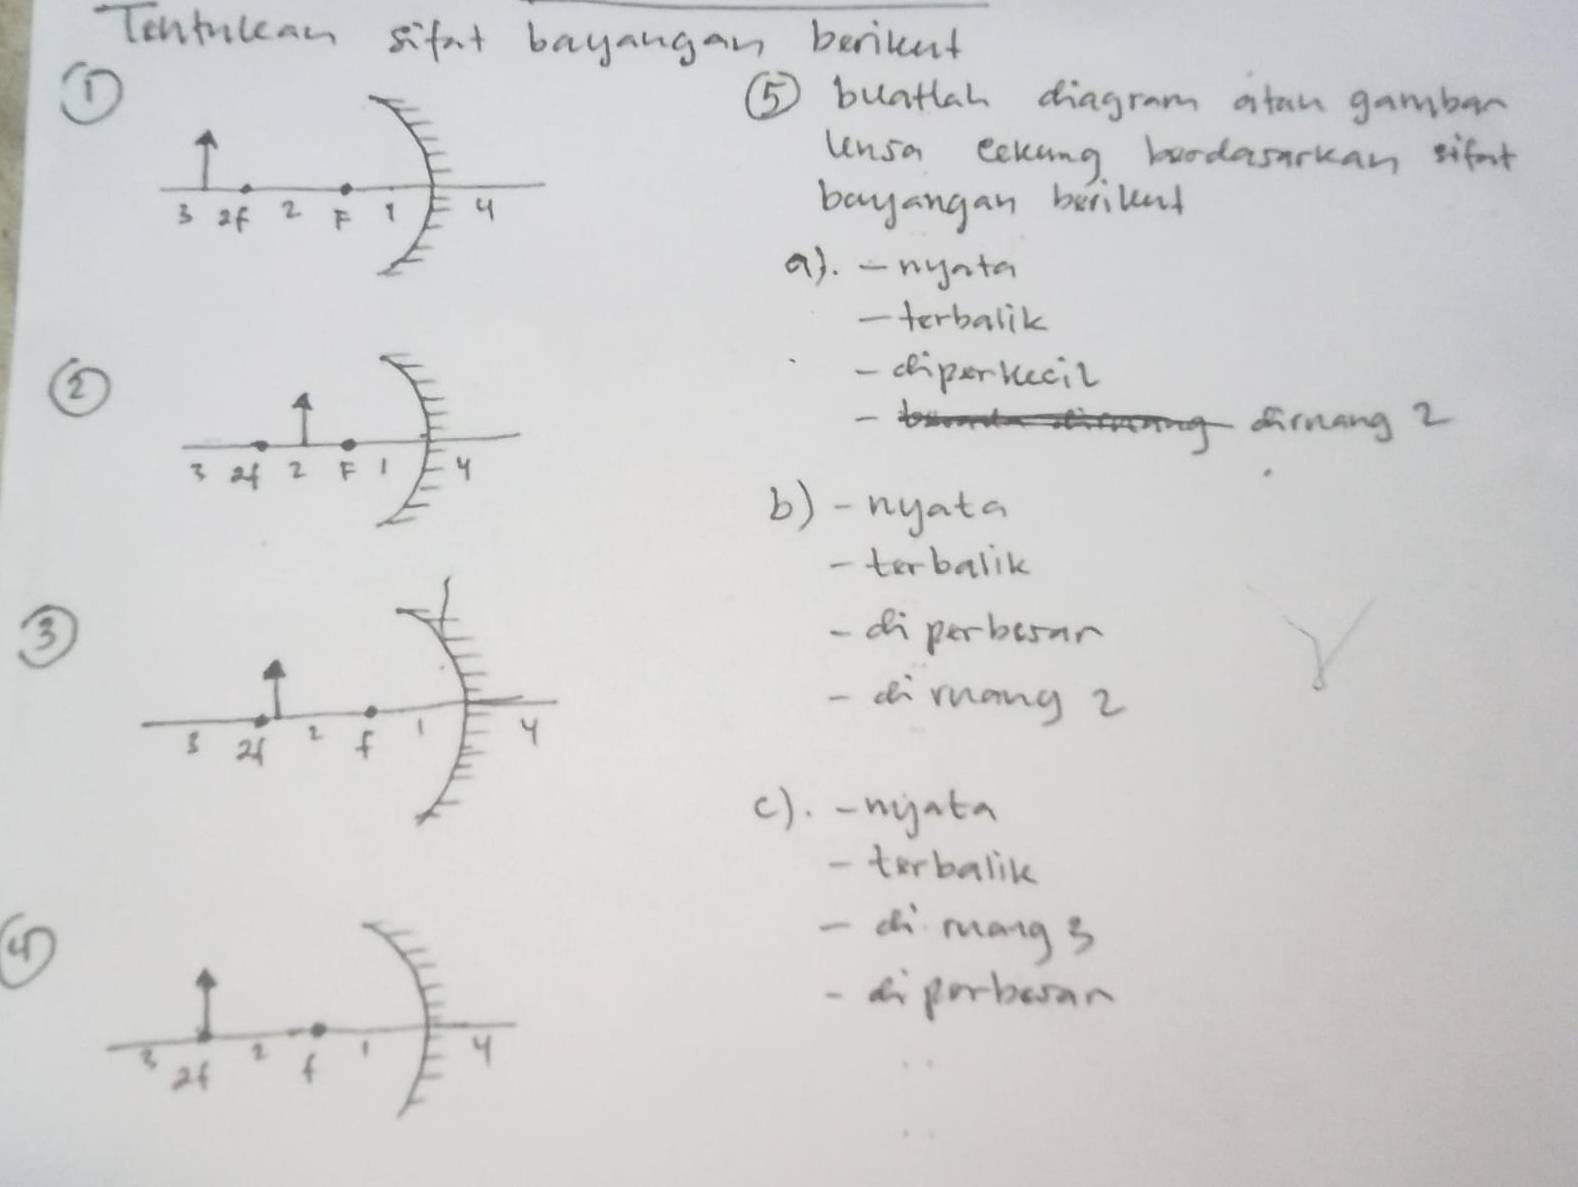 Tentukan sifat bayangan berikut
①
3 2f 2 F 1 4
②
3 2f 2 F 1 4
③
3 2f 2 f 1 4
④
3 2f 2 f 1 4
⑤ buatlah diagram atau gambar
lensa cekung berdasarkan sifat
bayangan berikut
a). - nyata
- terbalik
- diperkecil
- diruang 2
b) - nyata
- terbalik
- di perbesar
- di ruang 2
c). - nyata
- terbalik
- di ruang 3
- di perbesar